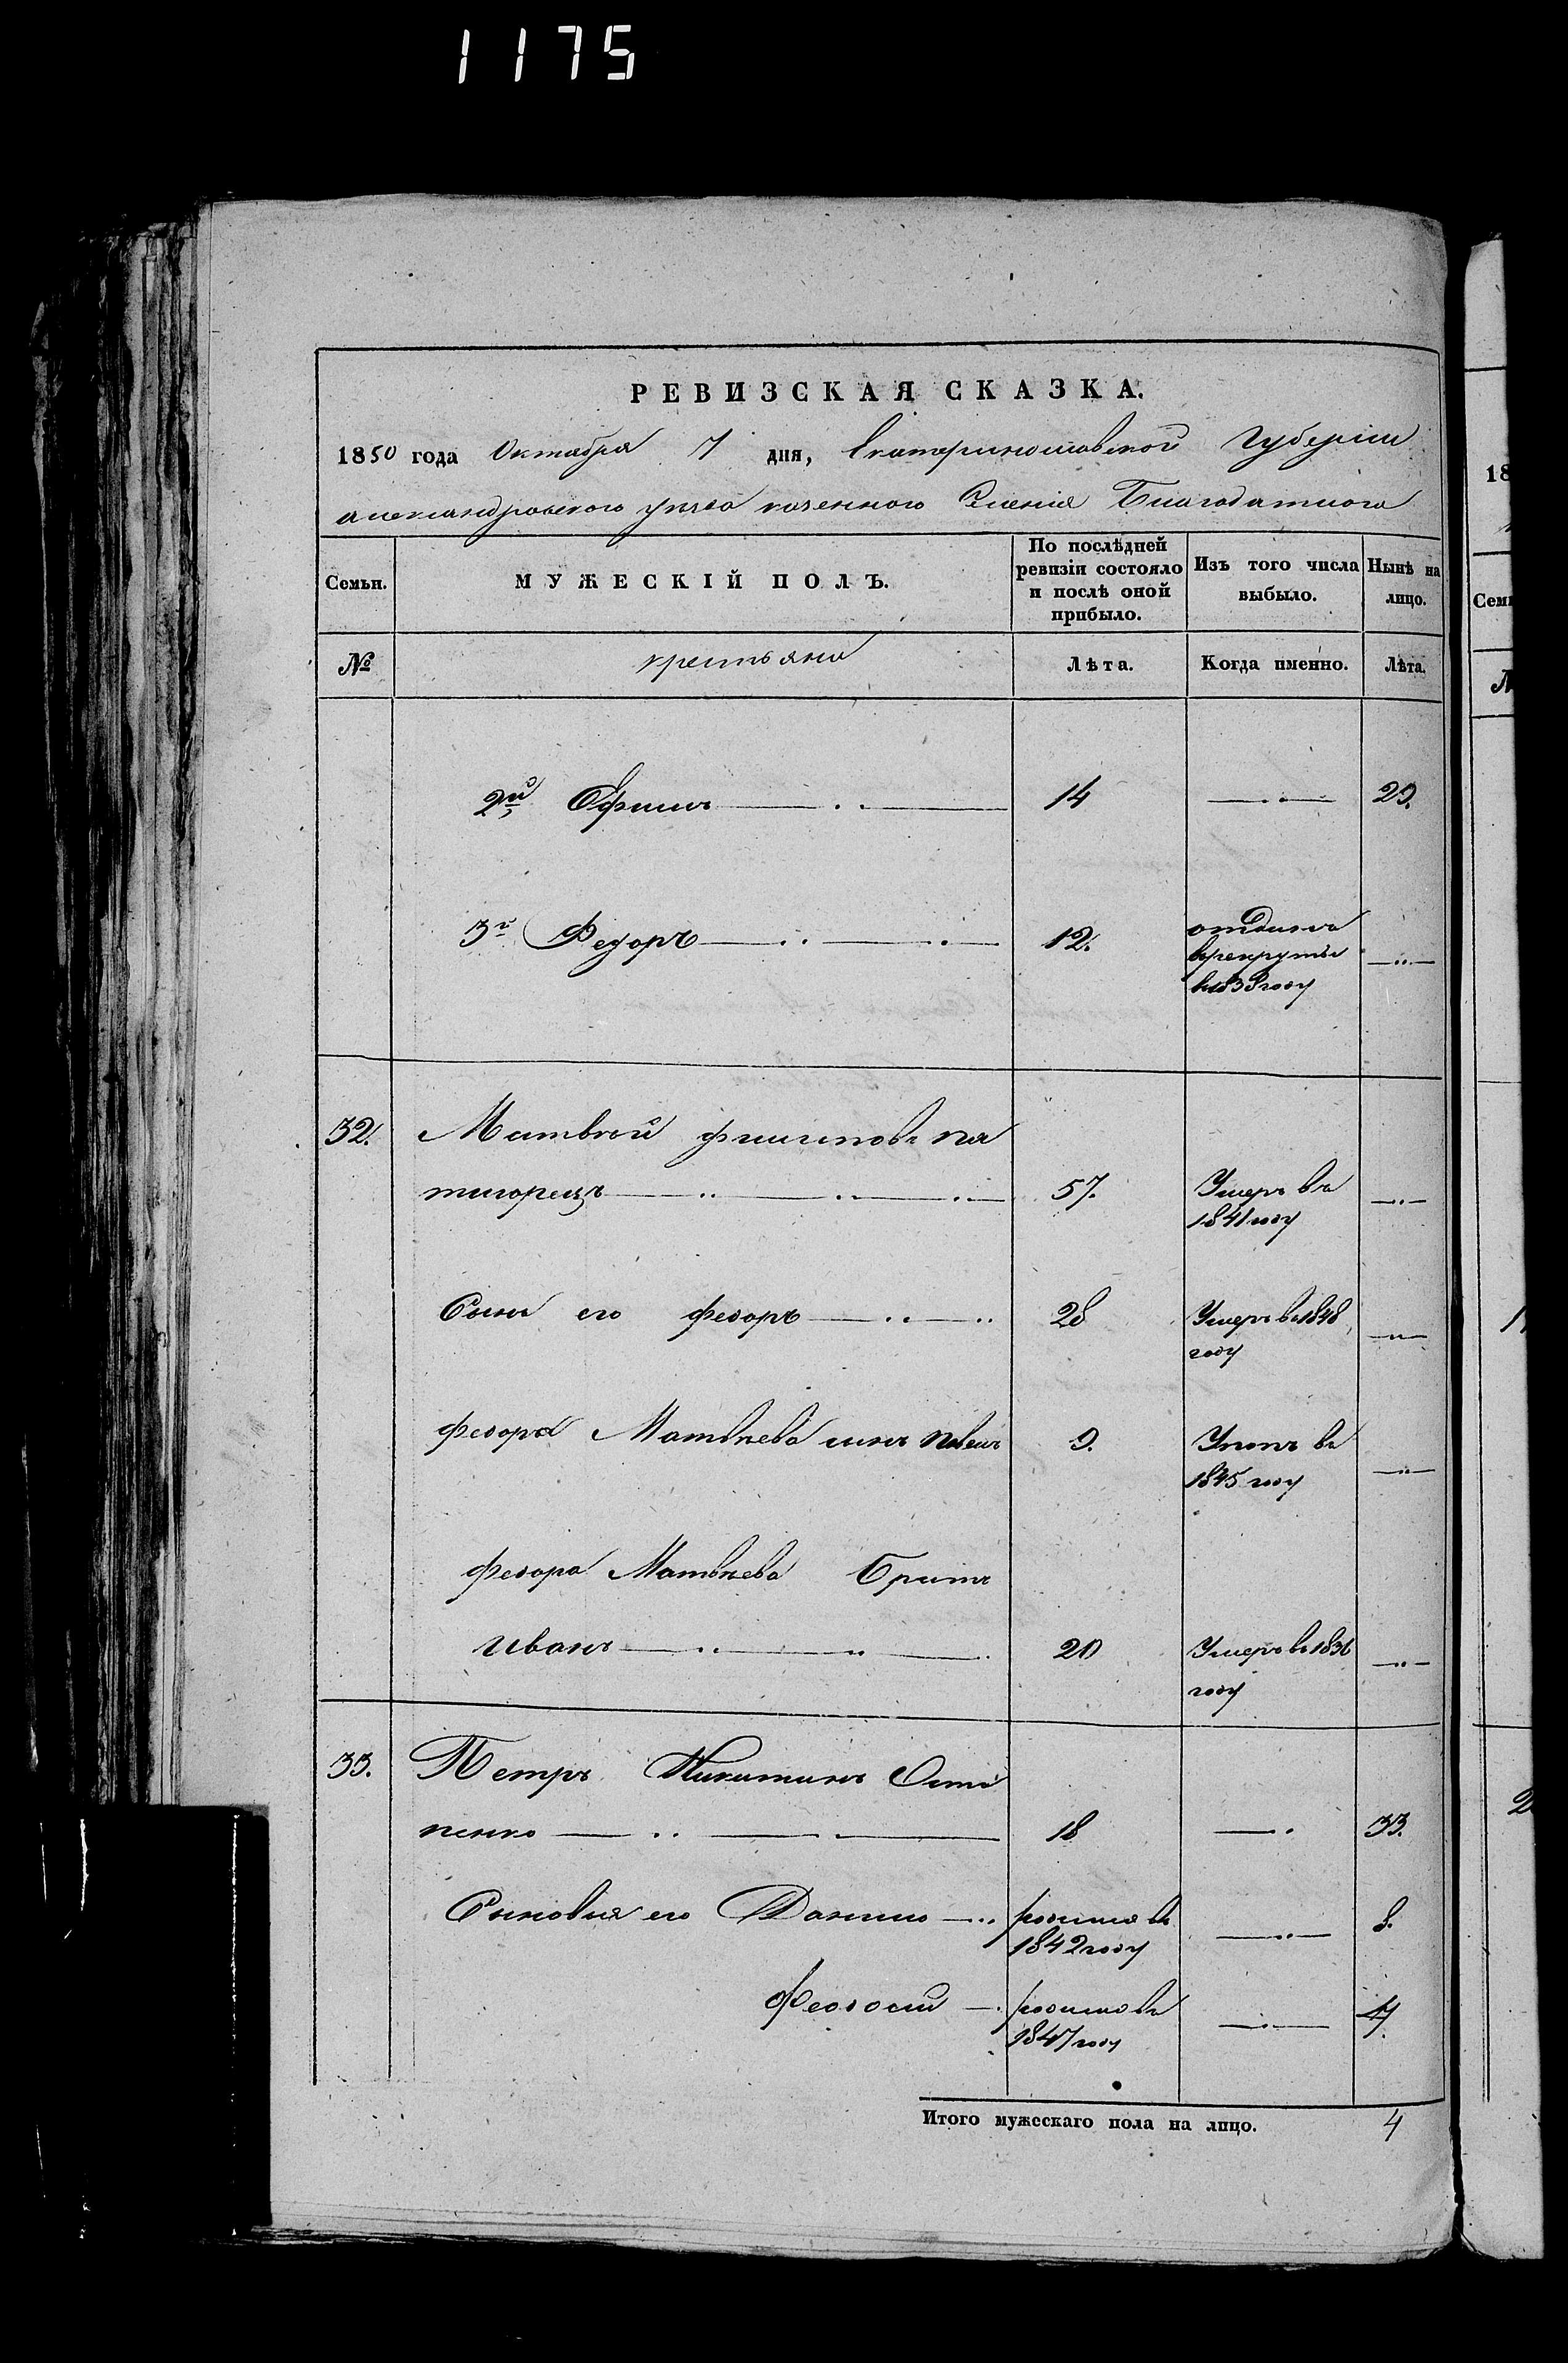 1175
РЕВИЗСКАЯ СКАЗКА.
1850 года Октября 7 дня, Екатеринославской Губернии
александровского уезда казенного Селения Благодатного
Семьи. МУЖЕСКІЙ ПОЛЪ. По послѣдней ревизіи состояло и послѣ оной прибыло. Изъ того числа выбыло. Нынѣ на лицо.
№ крестьяне Лѣта. Когда именно. Лѣта.
2й Ефимъ 14 29.
3й Федоръ 12. отданъ
врекруты
в1838 году
32. Матвѣй филиповъ пя
тигорецъ 57. Умеръ въ
1841 году
Сынъ его федоръ 28 Умеръ въ 1848
году
федора Матвѣева сынъ 9. въ
1845 году
федора Матвѣева Братъ
Иванъ 20 Умеръ въ 1836
году
33. Петръ Никитинъ
пенко 18 33.
Сыновья его Данило родился въ 8.
1842 году
Феодосій родился въ
1847 году
Итого мужескаго пола на лицо. 4
18
Сем